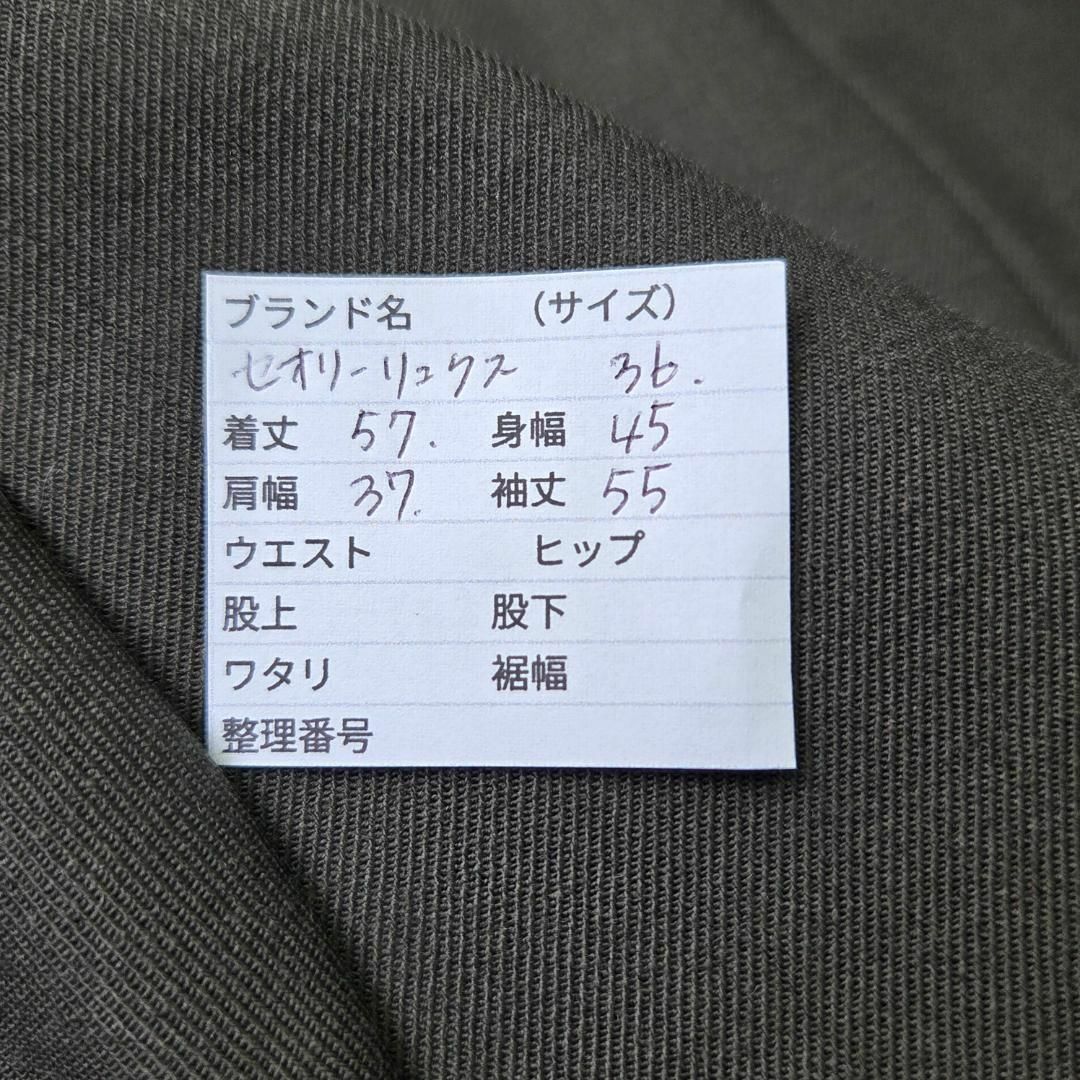 ブランド名 (サイズ)
セオリーリュクス 36.
着丈 57. 身幅 45
肩幅 37. 袖丈 55
ウエスト ヒップ
股上 股下
ワタリ 裾幅
整理番号